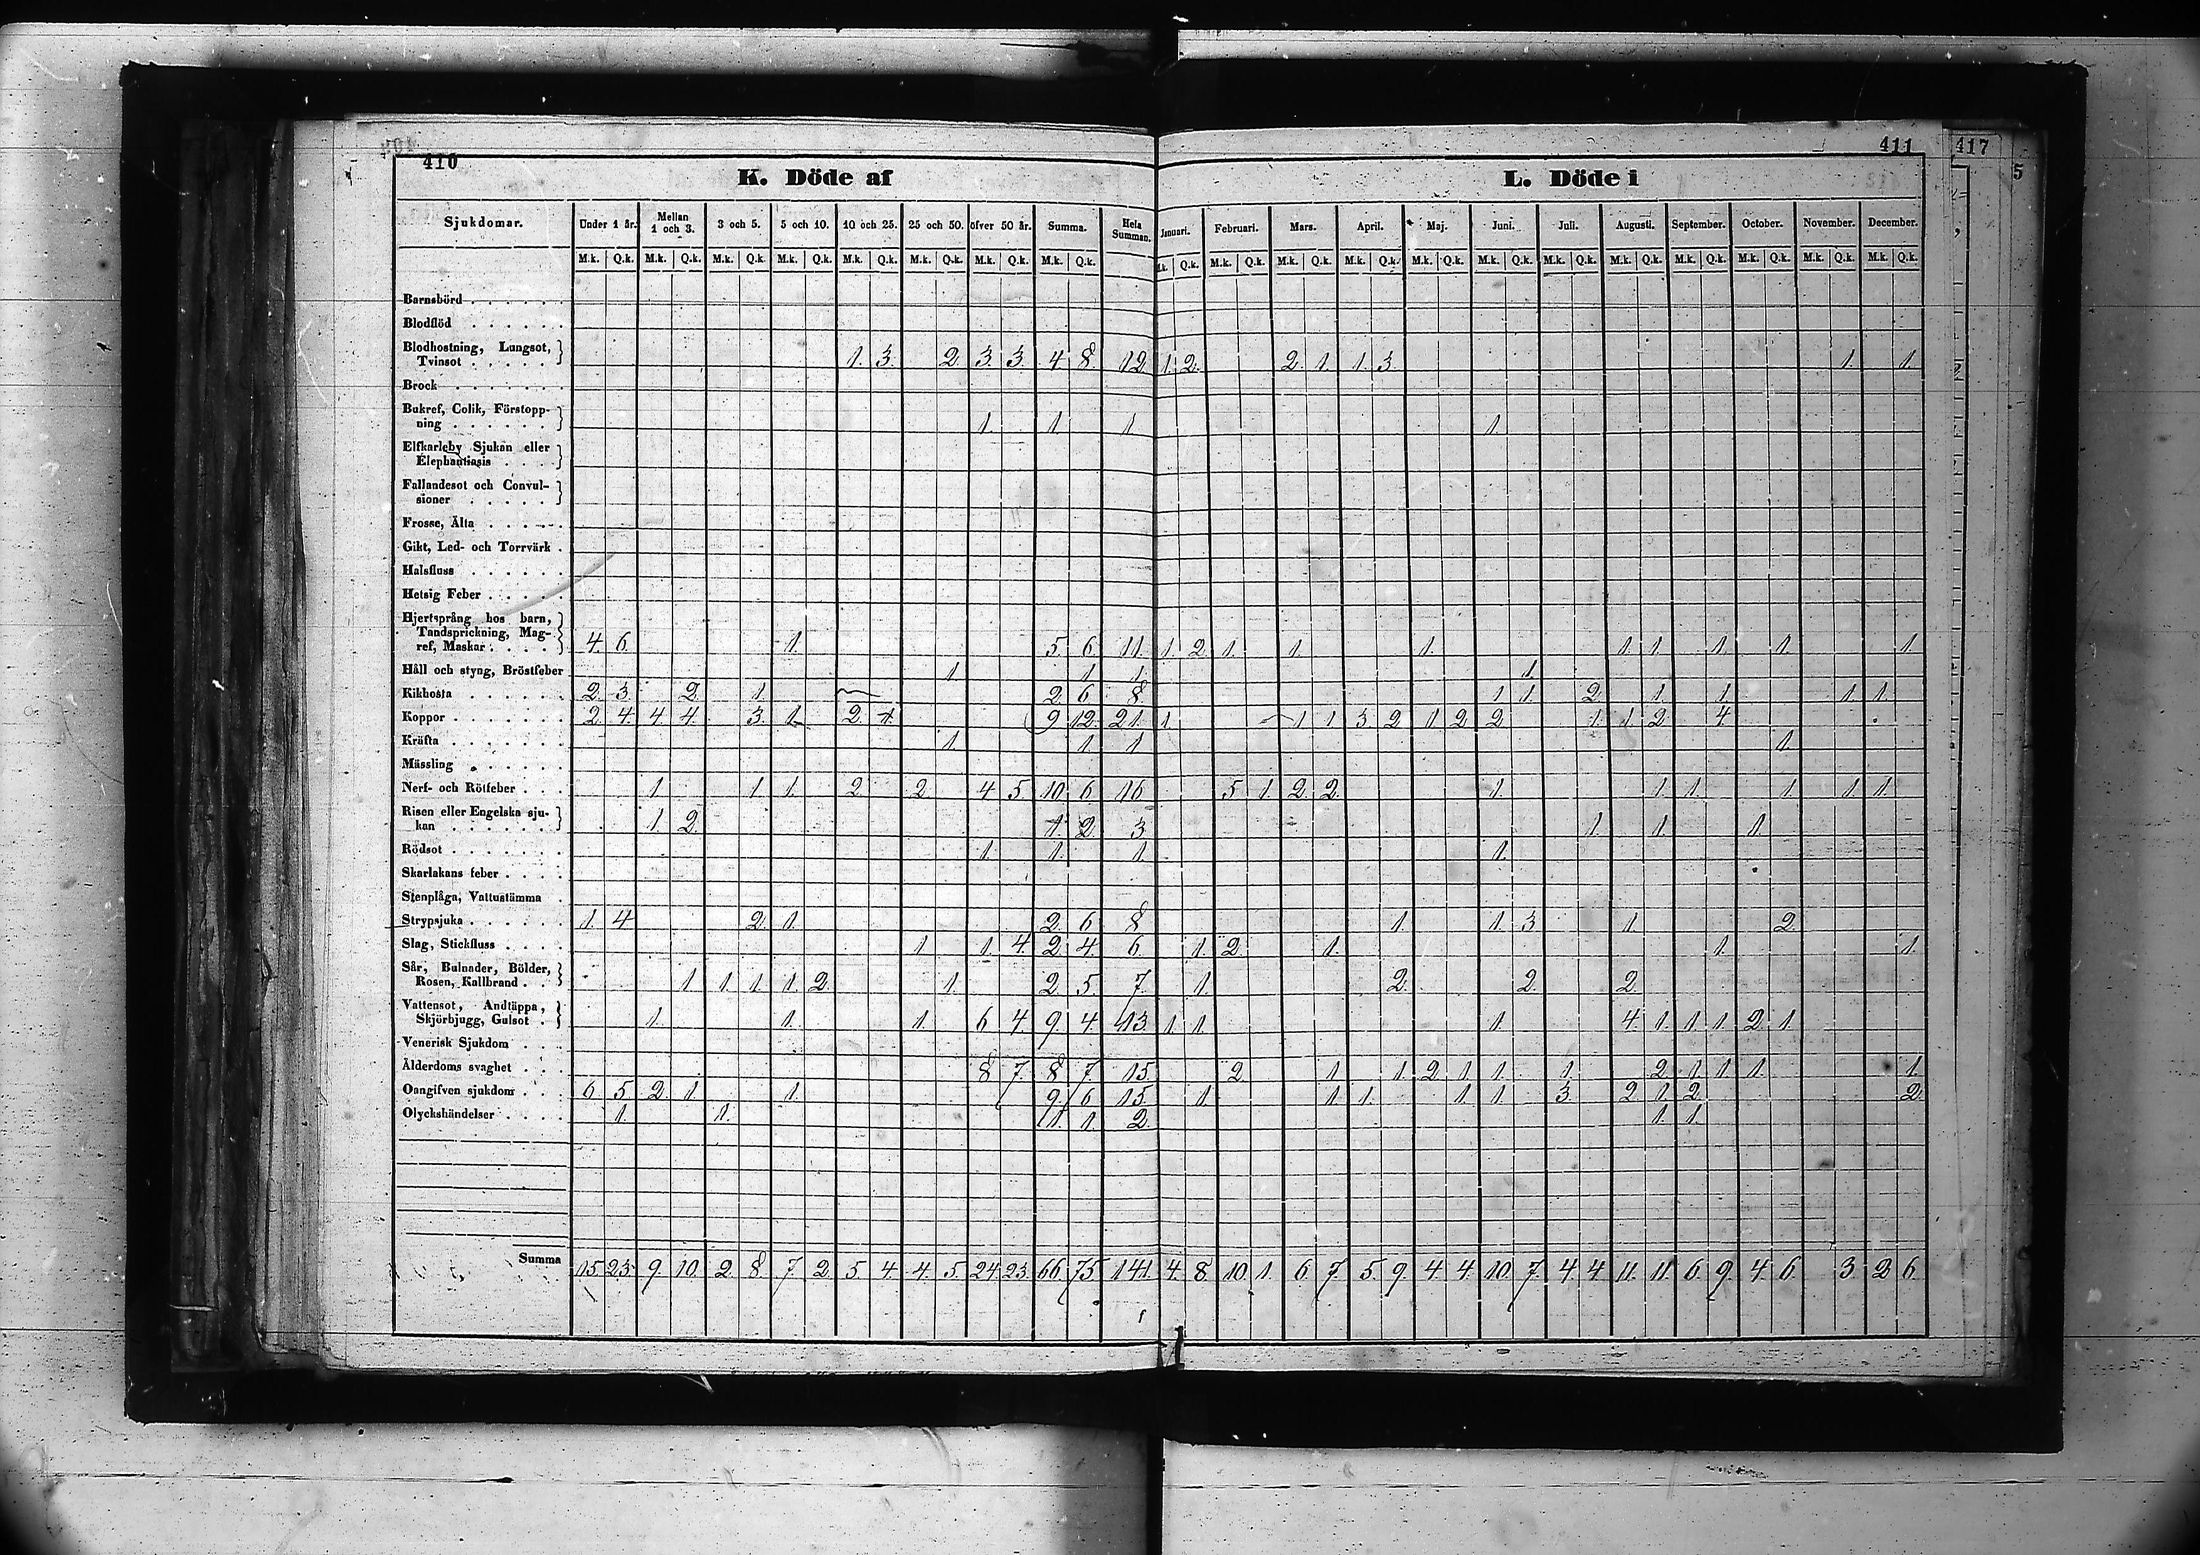 410
411
417
5
K. Döde af
L. Döde i
Sjukdomar. Under 1 år. Mellan 1 och 3. 3 och 5. 5 och 10. 10 och 25. 25 och 50. öfver 50 år. Summa. Hela Summan. Januari. Februari. Mars. April. Maj. Juni. Juli. Augusti. September. October. November. December.
M.k. Q.k. M.k. Q.k. M.k. Q.k. M.k. Q.k. M.k. Q.k. M.k. Q.k. M.k. Q.k. M.k. Q.k. M.k. Q.k. M.k. Q.k. M.k. Q.k. M.k. Q.k. M.k. Q.k. M.k. Q.k. M.k. Q.k. M.k. Q.k. M.k. Q.k. M.k. Q.k. M.k. Q.k. M.k. Q.k.
Barnsbörd . . . . . .
Blodflöd . . . . . .
Blodhostning, Lungsot,
Tvinsot . . . . . 1. 3. 2. 3. 3. 4. 8. 12. 1. 2. 2. 1. 1. 3. 1. 1.
Brock . . . . . . .
Bukref, Colik, Förstopp-
ning . . . . . . 1. 1. 1. 1.
Elfkarleby Sjukan eller
Elephantiasis . . . .
Fallandesot och Convul-
sioner . . . . . .
Frosse, Älta . . . . .
Gikt, Led- och Torrvärk .
Halsfluss . . . . . .
Hetsig Feber . . . . .
Hjertsprång hos barn,
Tandsprickning, Mag-
ref, Maskar . . . . 4. 6. 1. 5. 6. 11. 1. 2. 1. 1. 1. 1. 1. 1. 1. 1.
Håll och styng, Bröstfeber 1. 1. 1. 1.
Kikhosta . . . . . . 2. 3. 2. 1. 2. 6. 8. 1. 1. 2. 1. 1. 1. 1.
Koppor . . . . . . . 2. 4. 4. 4. 3. 1. 2. 1. 9. 12. 21. 1. 1. 1. 3. 2. 1. 2. 2. 1. 1. 2. 4.
Kräfta . . . . . . . 1. 1. 1. 1.
Mässling . . . . . .
Nerf- och Rötfeber . . . 1. 1. 1. 2. 2. 4. 5. 10. 6. 16. 5. 1. 2. 2. 1. 1. 1. 1. 1. 1.
Risen eller Engelska sju-
kan . . . . . . 1. 2. 1. 2. 3. 1. 1. 1.
Rödsot . . . . . . . 1. 1. 1. 1.
Skarlakans feber . . . .
Stenplåga, Vattustämma .
Strypsjuka . . . . . . 1. 4. 2. 1. 2. 6. 8. 1. 1. 3. 1. 2.
Slag, Stickfluss . . . . 1. 1. 4. 2. 4. 6. 1. 2. 1. 1. 1.
Sår, Bulnader, Bölder,
Rosen, Kallbrand . . 1. 1. 1. 1. 2. 1. 2. 5. 7. 1. 2. 2. 2.
Vattensot, Andtäppa,
Skjörbjugg, Gulsot . 1. 1. 1. 6. 4. 9. 4. 13. 1. 1. 1. 4. 1. 1. 1. 2. 1.
Venerisk Sjukdom . . .
Ålderdoms svaghet . . . 8. 7. 8. 7. 15. 2. 1. 1. 2. 1. 1. 1. 2. 1. 1. 1. 1.
Oangifven sjukdom . . . 6. 5. 2. 1. 1. 9. 6. 15. 1. 1. 1. 1. 1. 3. 2. 1. 2. 2.
Olyckshändelser . . . . 1. 1. 1. 1. 2. 1. 1.
Summa 15. 23. 9. 10. 2. 8. 7. 2. 5. 4. 4. 5. 24. 23. 66. 75. 141. 4. 8. 10. 1. 6. 7. 5. 9. 4. 4. 10. 7. 4. 4. 11. 11. 6. 9. 4. 6. 3. 2. 6.